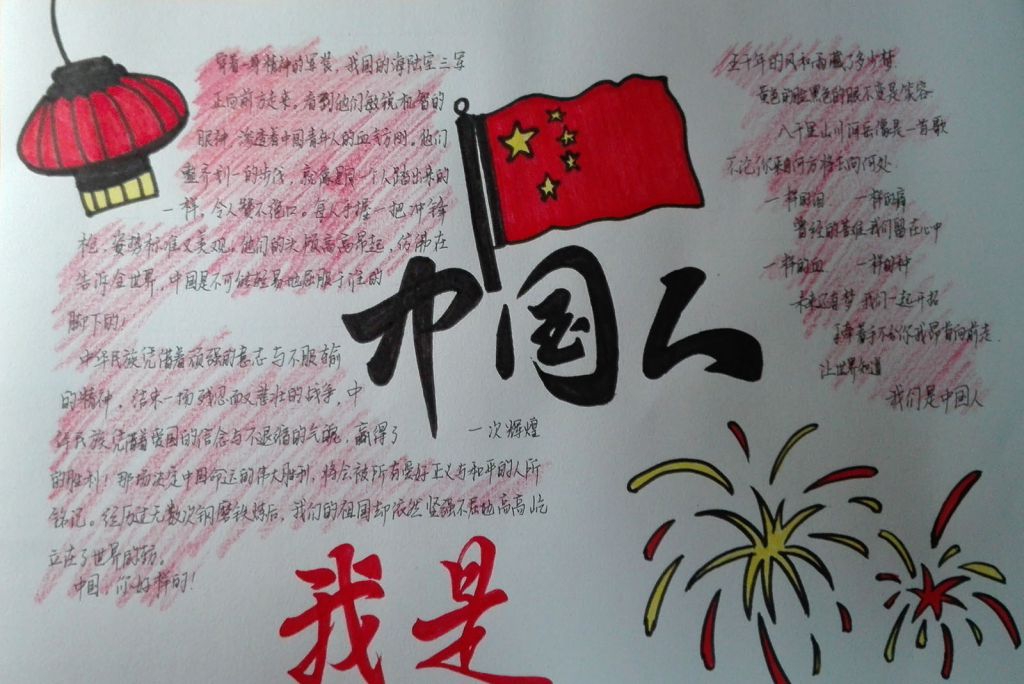 穿着一身精神的军装，我国的海陆空三军
正向前方走来，看到他们敏锐机智的
眼神，渗透着中国青年人的血气方刚。他们
整齐划一的步伐，就像是一个人踏出来的
一样，令人赞不绝口。每人手握一把冲锋
枪，姿势标准又美观。他们的头颅高高昂起，仿佛在
告诉全世界，中国是不可能轻易地屈服于谁的
脚下的！
中华民族凭借着顽强的意志与不服输
的精神，结束一场残忍而又悲壮的战争，中
华民族凭着爱国的信念与不退缩的气魄，赢得了 一次辉煌
的胜利！那场决定中国命运的伟大胜利，将会被所有爱好正义与和平的人所
铭记。经历过无数次钢磨铁炼后，我们的祖国却依然坚强不屈地高高屹
立在了世界的
中国，你好样的！
五千年的风和雨藏了多少梦
黄色的脸黑色的眼不变是笑容
八千里山川河岳像是一首歌
不论你来自何方将去向何处
一样的泪 一样的痛
曾经的苦难我们留在心中
一样的血 一样的种
未来还有梦我们一起开拓
手牵着手不分你我昂首向前走
让世界知道
我们是中国人
中国人
我是